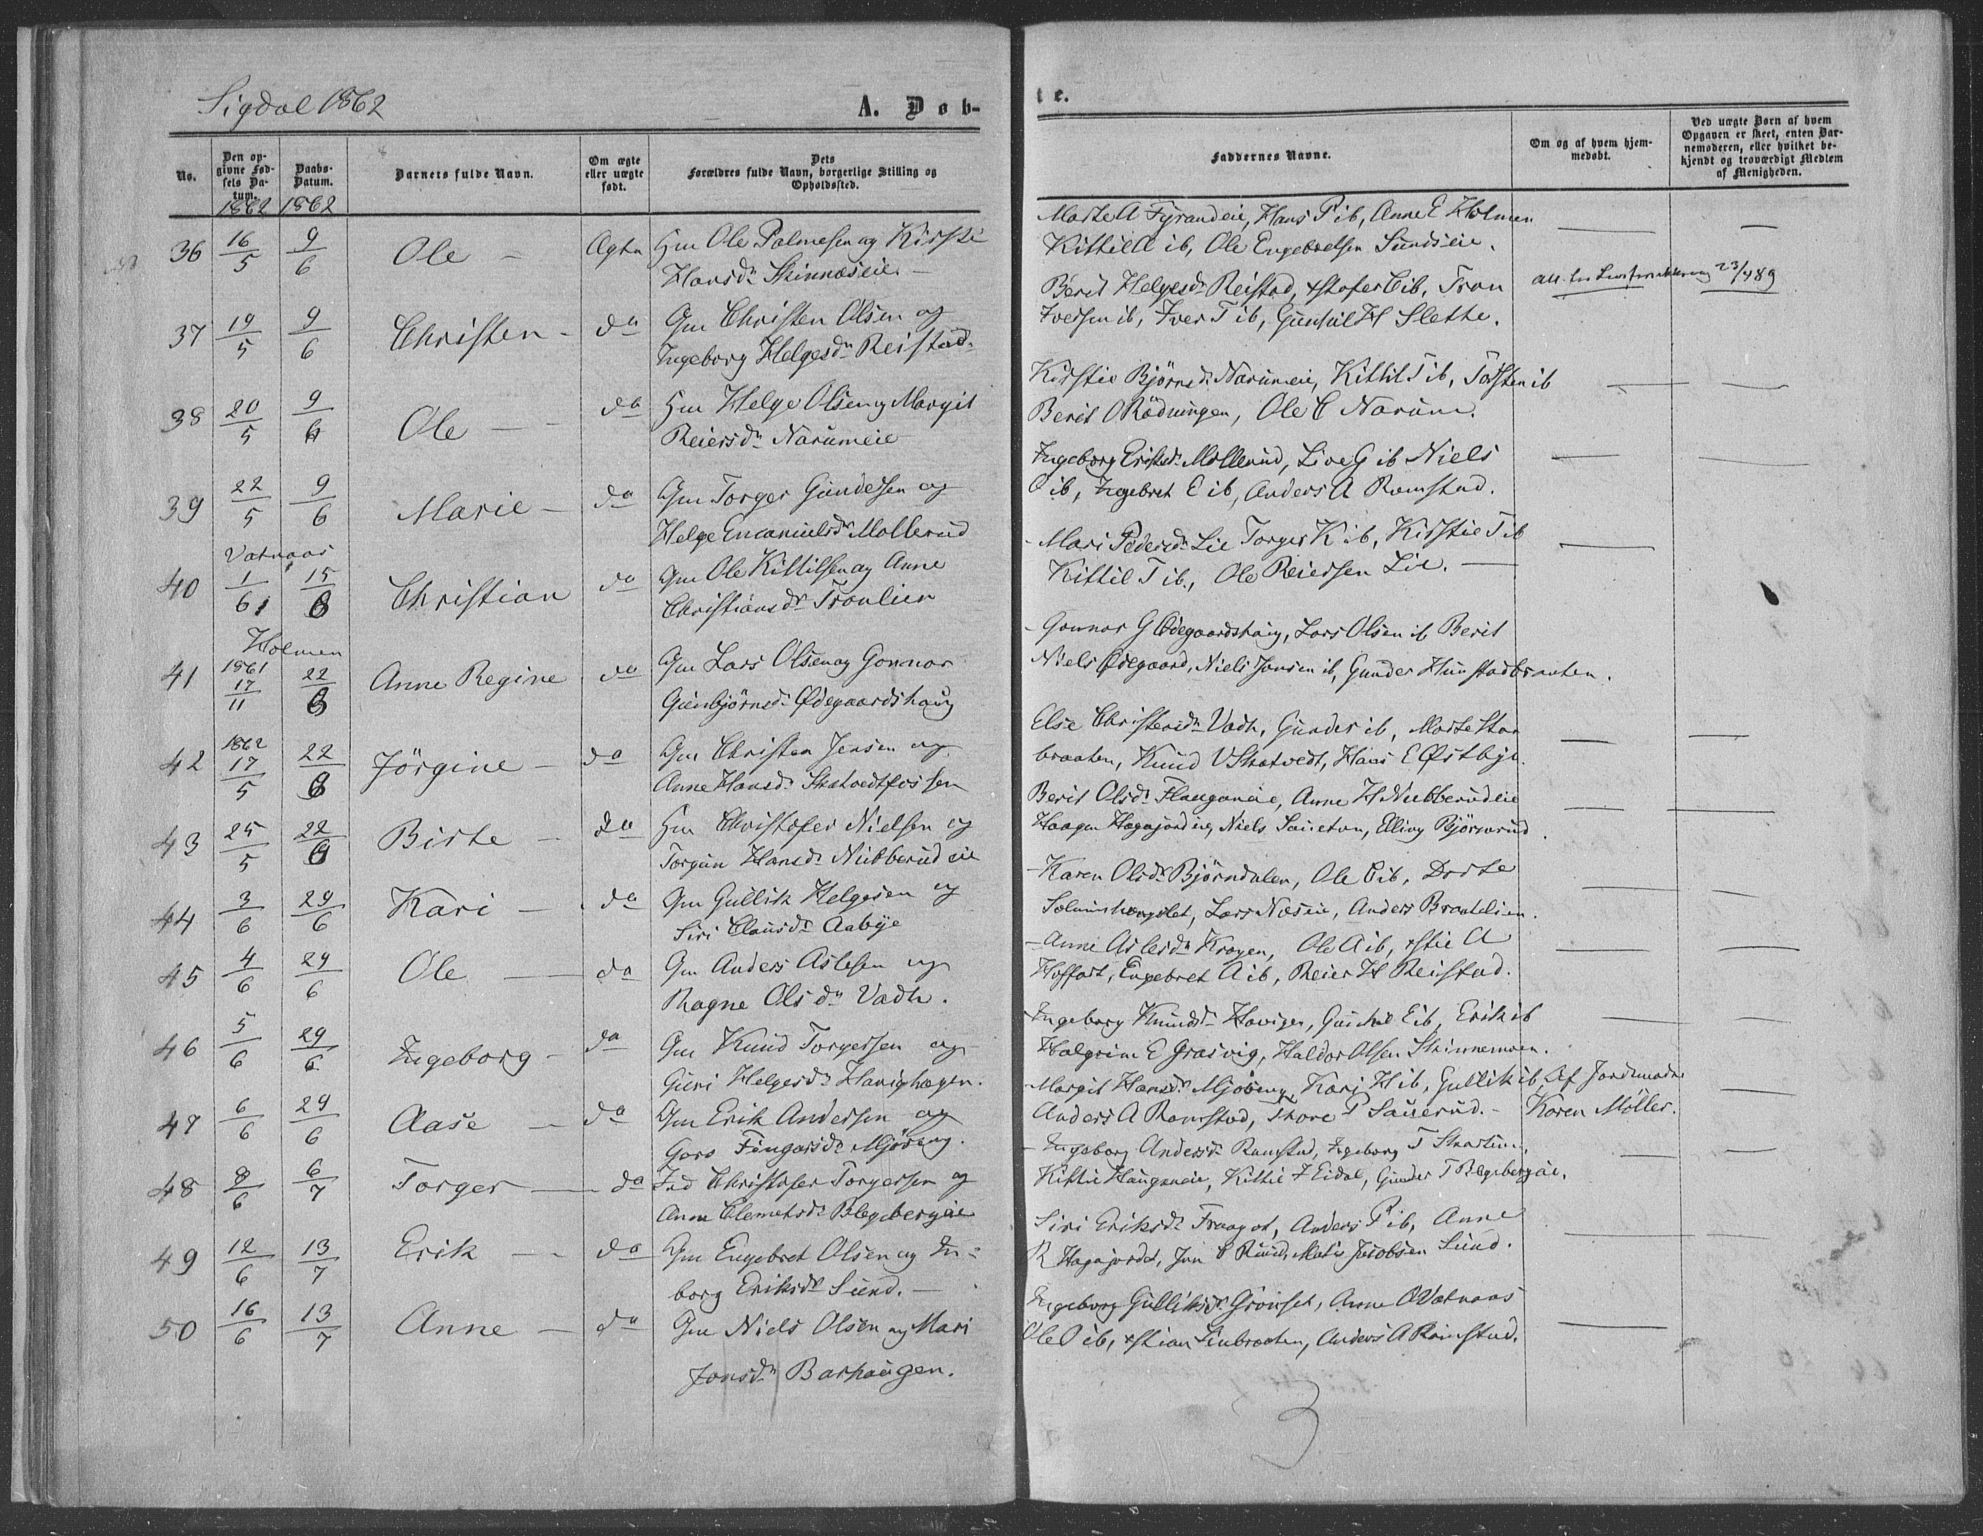 Sigdal 1862
A. Døb-
te.
No.
Den op-
givne Fød-
sels Da-
tum.
Daabs-
Datum.
Barnets fulde Navn.
Om ægte
eller uægte
født.
Dets
Forældres fulde Navn, borgerlige Stilling og
Opholdssted.
Faddernes Navne.
Om og af hvem hjem-
medøbt.
Ved uægte Børn af hvem
Opgaven er skeet, enten Bar-
nemoderen, eller hvilket be-
kjendt og troværdigt Medlem
af Menigheden.
1862 1862
36 16/5 9/6 Ole Ægte Hm Ole Palmesen og Kirsti
Hansdr Skinnæseie
Marte A Fyrandeie, Hans P ib, Anne E Holmen
Kittil A ib, Ole Engebretsen Sundseie.
37 19/5 9/6 Christen do Gm Christen Olsen og
Ingeborg Helgesdr Reistad
Berit Helgesdr Reistad, xstofer C ib, Tron
Iversen ib, Iver T ib, Gunhil H Slette.
23/4 89
38 20/5 9/6 Ole do Hm Helge Olsen og Margit
Reiersdr Narumeie
Kirstie Bjørnsdr Narumeie, Kittil T ib, Torsten ib
Berit O Rödningen, Ole C Narum.
39 22/5 9/6 Marie do Gm Torger Gundesen og
Helge Emanuelsdr Mollerud
Ingeborg Eriksdr Mollerud, Live G ib Niels
O ib, Ingebret E ib, Anders A Ramstad.
Vatnaas
40 1/6 15/6 Christian do Gm Ole Kittilsen og Anne
Christiansdr Tronlien
Mari Pedersdr Lie Torger K ib, Kirstie T ib
Kittil T ib, Ole Reiersen Lie.
Holmen
41 1861 17/11 22/6 Anne Regine do Gm Lars Olsen og Gonnor
Gunbjørnsdr Ødegaardshaug
Gonnor G Ødegaardshaug, Lars Olsen ib Berit
Niels Ødegaard, Niels Jonsen ib, Gunder Hunstadbraaten.
42 1862 17/5 22/6 Jörgine do Gm Christen Jensen og
Anne Hansdr Skatvedtfossen
Else Christensdr Vadh, Gunder ib, Marte Stor
braaten, Knud V Skatvedt, Hans E Østbye.
43 25/5 22/6 Birte do Hm Christofer Nielsen og
Torgun Hansdr Nubberudeie
Berit Olsdr Flauganeie, Anne H Nubberudeie
Haagen Hagajordeie, Niels Saueton, Elling Björnerud.
44 3/6 29/6 Kari do Gm Gullik Helgesen og
Siri Clausdr Aabye
Karen Olsdr Björndalen, Ole C ib, Dorte
Lars Næseie, Anders Braatelien.
45 4/6 29/6 Ole do Gm Anders Aslesen og
Ragne Olsdr Vadh.
Anne Aslesdr Kragen, Ole A ib, xstie A
Hoffart, Engebret A ib, Reier H Reistad.
46 5/6 29/6 Ingeborg do Gm Knud Torgersen og
Guri Helgesdr Havighagen.
Ingeborg Knudsdr Havigen, Gunhil E ib, Erik ib
Halgrim E Grasvig, Haldor Olsen Skinnemoen.
47 6/6 29/6 Aase do Gm Erik Andersen og
Goro Fingarsdr Mjöseng.
Margit Hansdr Mjöseng Kari H ib, Gullik ib,
Anders A Ramstad, Thore P Sauerud.
Af Jordemoder
Karen Møller.
48 8/6 6/7 Torger do Ind Christofer Torgersen og
Anne Clemetsdr Blegebergeie
Ingeborg Andersdr Ramstad, Ingeborg T Skartum,
Kittie Hauganeie, Kittil F Eidal, Gunder T Blegebergeie.
49 12/6 13/7 Erik do Gm Engebret Olsen og In-
borg Eriksdr Sund.
Siri Eriksdr Fraagot, Anders P ib, Anne
R Hagajordet, Jon C Ruud, Mats Jacobsen Sund.
50 16/6 13/7 Anne do Gm Niels Olsen og Mari
Jonsdr Barhaugen.
Ingeborg Gulliksdr Grönset, Anne O Vatnaas
Ole O ib, xstian Finbraaten, Anders A Ramstad.
3